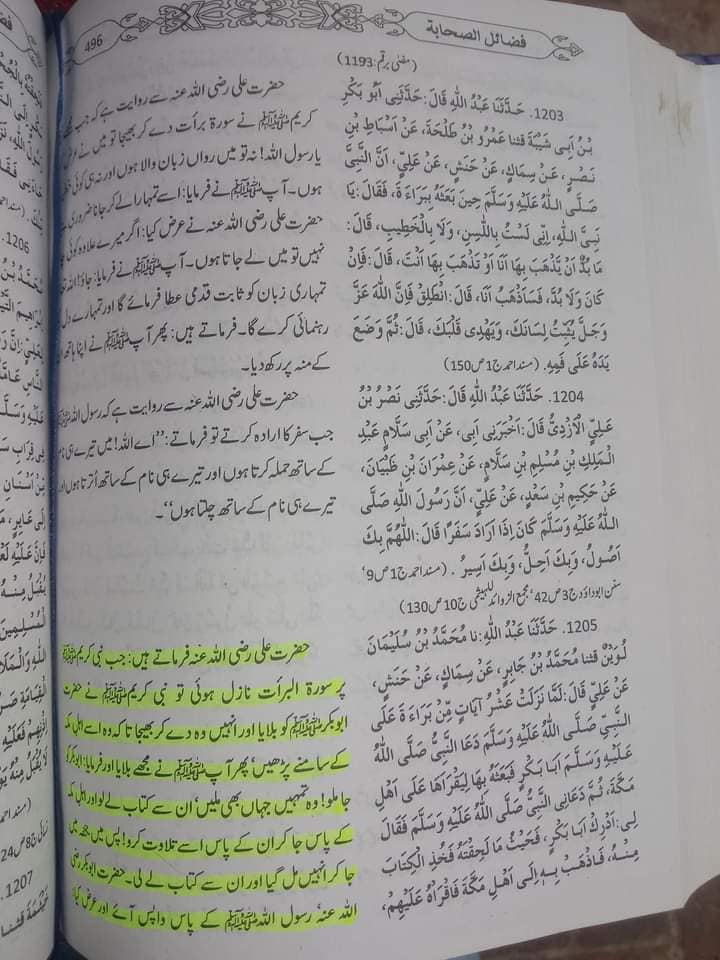 496
فضائل الصحابة
(مضٰی برقم:1193)
1203. حَدَّثَنَا عَبْدُ اللَّهِ قَالَ: حَدَّثَنِى أَبُو بَكْرِ
بْنُ اَبِى شَيْبَةَ قثنا عَمْرُو بْنُ طَلْحَةَ، عَنْ اَسْبَاطِ بْنِ
نَصْرٍ، عَنْ سِمَاكٍ، عَنْ حَنَشٍ، عَنْ عَلِيٍّ، اَنَّ النَّبِيَّ
صَلَّى اللهُ عَلَيْهِ وَسَلَّمَ حِينَ بَعَثَهُ بِبَرَاءَ ةَ، فَقَالَ: يَا
نَبِيَّ اللهِ، اِنِّى لَسْتُ بِاللَّسِنِ، وَلَا بِالْخَطِيبِ، قَالَ:
مَا بُدٌّ اَنْ يَذْهَبَ بِهَا اَنَا اَوْ تَذْهَبَ بِهَا اَنْتَ، قَالَ: فَاِنْ
كَانَ وَلَا بُدَّ، فَسَاَذْهَبُ اَنَا، قَالَ: انْطَلِقْ فَاِنَّ اللهَ عَزَّ
وَجَلَّ يُثَبِّتُ لِسَانَكَ، وَيَهْدِى قَلْبَكَ، قَالَ: ثُمَّ وَضَعَ
يَدَهُ عَلَى فَمِهِ. (مسند احمد ج1 ص150)
1204. حَدَّثَنَا عَبْدُ اللَّهِ قَالَ: حَدَّثَنِى نَصْرُ بْنُ
عَلِيٍّ الْاَزْدِيُّ قَالَ: اَخْبَرَنِى اَبِى، عَنْ اَبِى سَلَّامٍ عَبْدِ
الْمَلِكِ بْنِ مُسْلِمِ بْنِ سَلَّامٍ، عَنْ عِمْرَانَ بْنِ ظَبْيَانَ،
عَنْ حَكِيمِ بْنِ سَعْدٍ، عَنْ عَلِيٍّ، اَنَّ رَسُولَ اللهِ صَلَّى
اللهُ عَلَيْهِ وَسَلَّمَ كَانَ اِذَا اَرَادَ سَفَرًا قَالَ: اللَّهُمَّ بِكَ
اَصُولُ، وَبِكَ اَحِلُّ، وَبِكَ اَسِيرُ . (مسند احمد ج1 ص9'
سنن ابوداؤد ج3 ص42' مجمع الزوائد للہیثمی ج10 ص130)
1205. حَدَّثَنَا عَبْدُ اللَّهِ: نا مُحَمَّدُ بْنُ سُلَيْمَانَ
لُوَيْنٌ قثنا مُحَمَّدُ بْنُ جَابِرٍ، عَنْ سِمَاكٍ، عَنْ حَنَشٍ،
عَنْ عَلِيٍّ قَالَ: لَمَّا نَزَلَتْ عَشْرُ آيَاتٍ مِنْ بَرَاءَ ةَ عَلَى
النَّبِيِّ صَلَّى اللهُ عَلَيْهِ وَسَلَّمَ دَعَا النَّبِيُّ صَلَّى اللهُ
عَلَيْهِ وَسَلَّمَ اَبَا بَكْرٍ فَبَعَثَهُ بِهَا لِيَقْرَاَهَا عَلَى اَهْلِ
مَكَّةَ، ثُمَّ دَعَانِى النَّبِيُّ صَلَّى اللهُ عَلَيْهِ وَسَلَّمَ فَقَالَ
لِى: اَدْرِكْ اَبَا بَكْرٍ، فَحَيْثُ مَا لَحِقْتَهُ فَخُذِ الْكِتَابَ
مِنْهُ، فَاذْهَبْ بِهِ اِلَى اَهْلِ مَكَّةَ فَاقْرَاْهُ عَلَيْهِمْ،
حضرت علی رضی اللہ عنہ سے روایت ہے کہ جب مجھے
کریم ﷺ نے سورۃ برأت دے کر بھیجا تو میں نے عرض
یا رسول اللہ! نہ تو میں رواں زبان والا ہوں اور نہ ہی کوئی
ہوں۔ آپ ﷺ نے فرمایا: اسے تمہارا لے کر جانا ضروری ہے
حضرت علی رضی اللہ عنہ نے عرض کیا: اگر میرے علاوہ کوئی
نہیں تو میں لے جاتا ہوں۔ آپ ﷺ نے فرمایا: جاؤ! اللہ
تمہاری زبان کو ثابت قدمی عطا فرمائے گا اور تمہارے دل
رہنمائی کرے گا۔ فرماتے ہیں: پھر آپ ﷺ نے اپنا ہاتھ
کے منہ پر رکھ دیا۔
حضرت علی رضی اللہ عنہ سے روایت ہے کہ رسول اللہ ﷺ
جب سفر کا ارادہ کرتے تو فرماتے: ''اے اللہ! میں تیرے ہی نام
کے ساتھ حملہ کرتا ہوں اور تیرے ہی نام کے ساتھ اُترتا ہوں اور
تیرے ہی نام کے ساتھ چلتا ہوں''۔
حضرت علی رضی اللہ عنہ فرماتے ہیں: جب نبی کریم ﷺ
پر سورۃ البرأت نازل ہوئی تو نبی کریم ﷺ نے حضرت
ابوبکر ﷺ کو بلایا اور انہیں وہ دے کر بھیجا تا کہ وہ اسے اہل مکہ
کے سامنے پڑھیں' پھر آپ ﷺ نے مجھے بلایا اور فرمایا: ابوبکر کو
جا ملو! وہ تمہیں جہاں بھی ملیں' اُن سے کتاب لے لو اور اہل مکہ
کے پاس جا کر ان کے پاس اسے تلاوت کرو! پس میں جحفہ میں
جا کر انہیں مل گیا اور ان سے کتاب لے لی۔ حضرت ابوبکر رضی
اللہ عنہ' رسول اللہ ﷺ کے پاس واپس آئے اور عرض کیا:
1206
1207